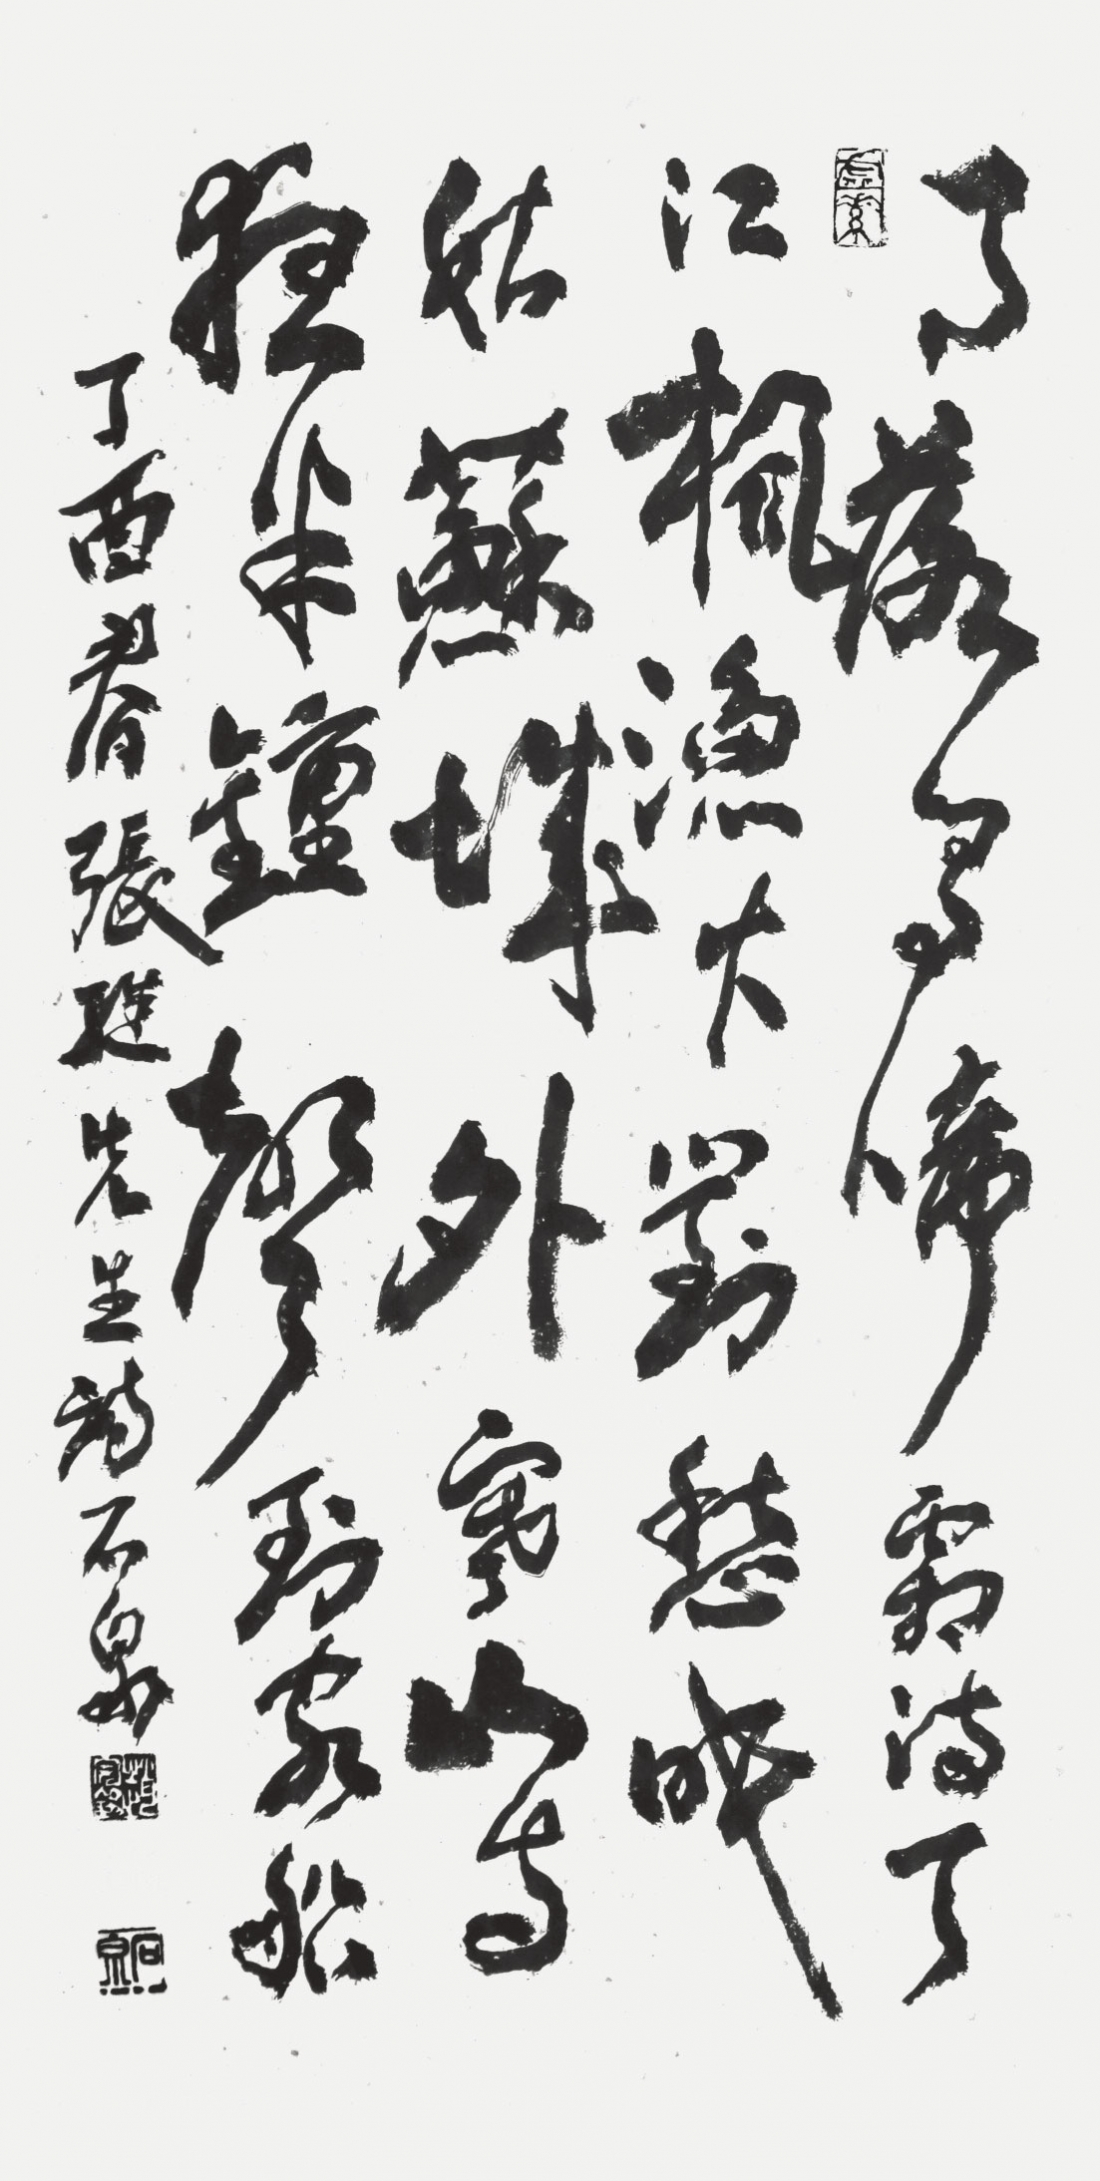 月落烏啼霜滿天
江楓漁火對愁眠
姑蘇城外寒山寺
夜半鐘聲到客船
丁酉春張繼先生詩石泉
石泉